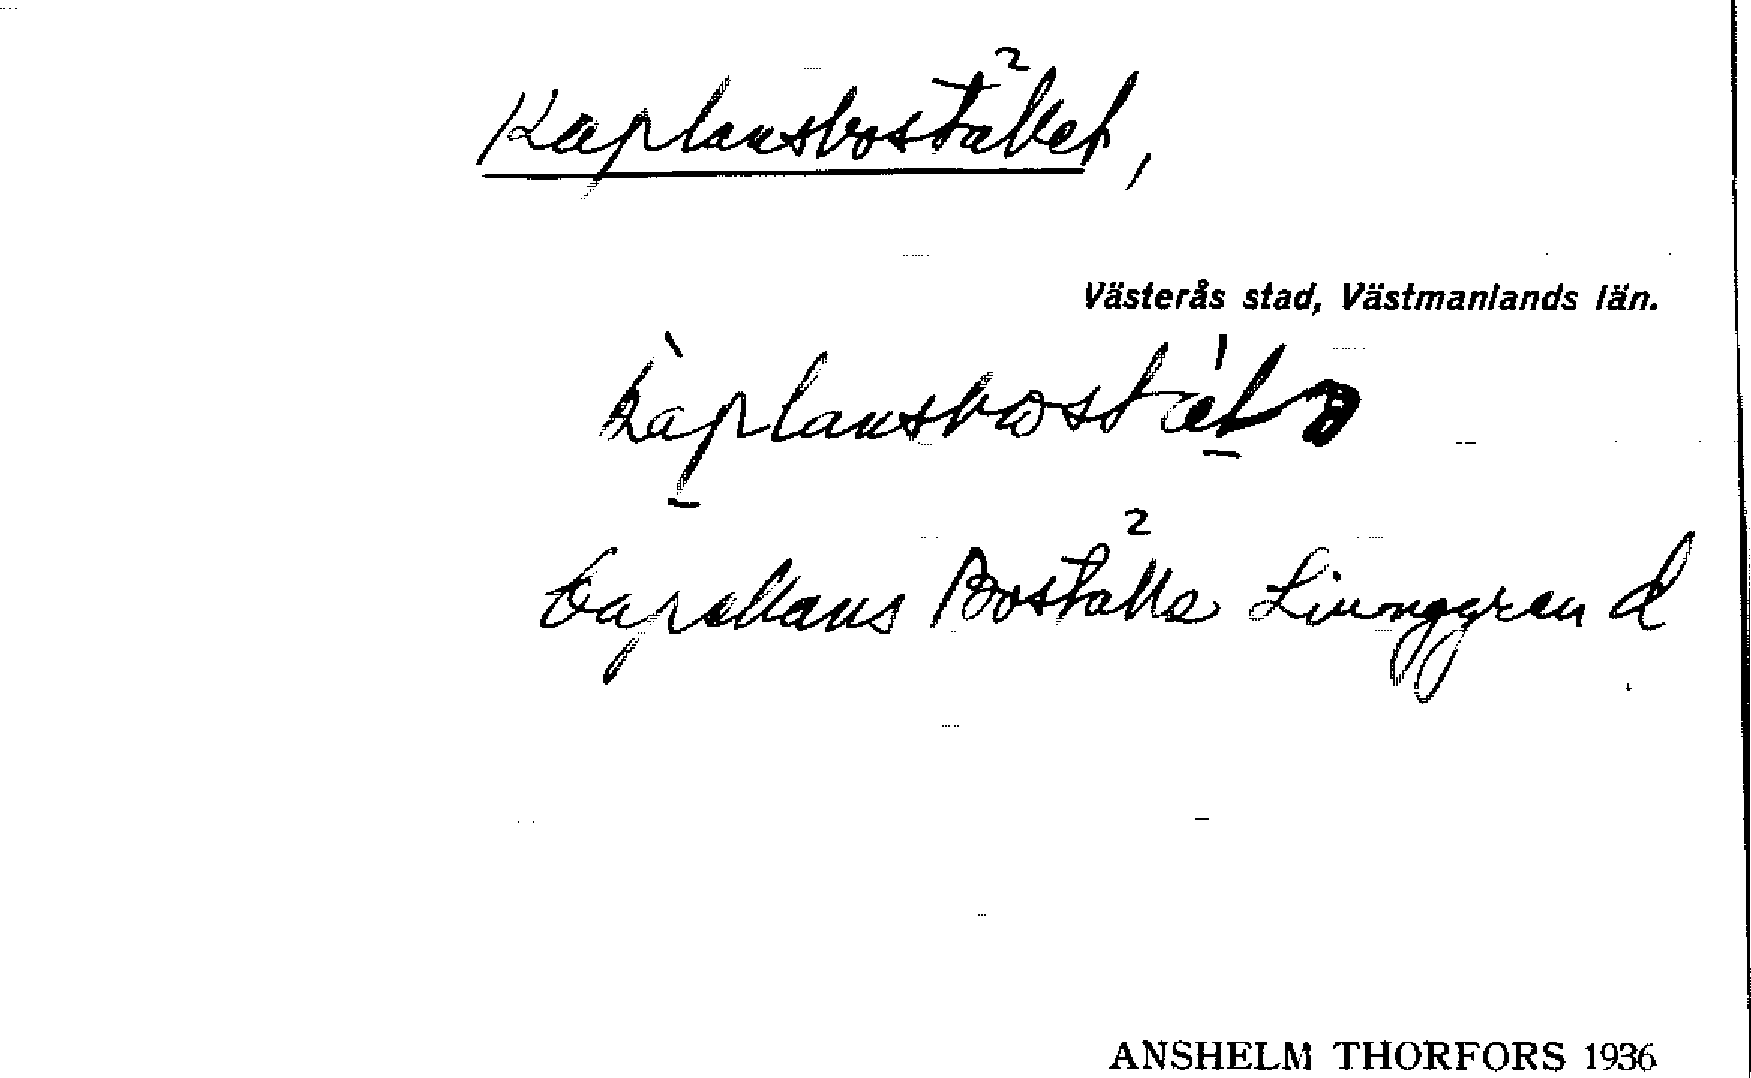 Kaplansbostället,
Västerås stad, Västmanlands län.
Capellans Boställe Liunggren d
ANSHELM THORFORS 1936